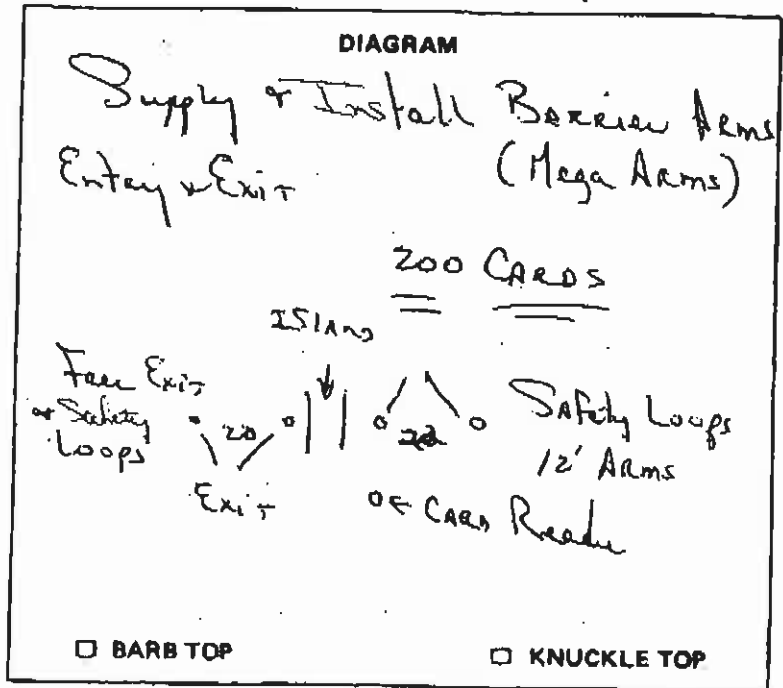 DIAGRAM
Supply & Install Barrier Arms
Entry & Exit (Mega Arms)
200 CARDS
ISLAND
Free Exit
& Safety
Loops
20
Exit
Safety Loops
12' ARMS
CARD Reader
☐ BARB TOP ☐ KNUCKLE TOP